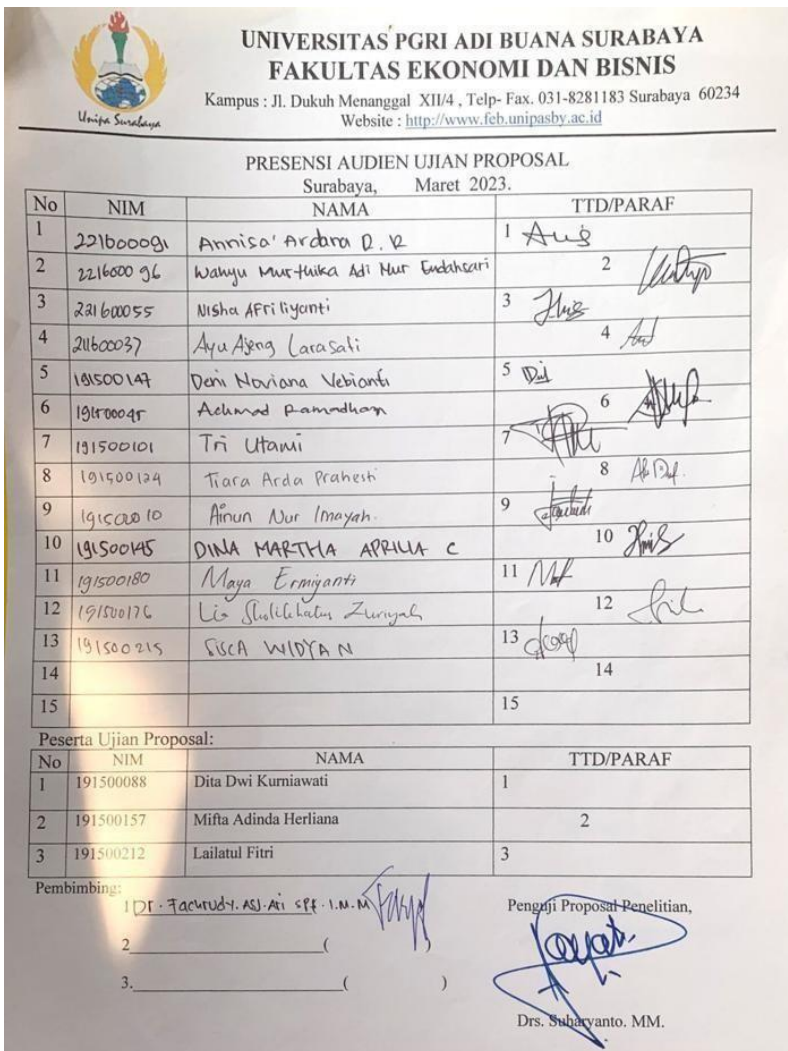 Unipa Surabaya
UNIVERSITAS PGRI ADI BUANA SURABAYA
FAKULTAS EKONOMI DAN BISNIS
Kampus : Jl. Dukuh Menanggal XII/4 , Telp- Fax. 031-8281183 Surabaya 60234
Website : http://www.feb.unipasby.ac.id
PRESENSI AUDIEN UJIAN PROPOSAL
Surabaya, Maret 2023.
No NIM NAMA TTD/PARAF
1 221600091 Annisa' Ardana D. R 1
2 221600096 Wahyu Murthika Adi Nur Endahsari 2
3 221600055 Nisha AFriliyanti 3
4 211600037 Ayu Ajeng Larasati 4
5 191500147 Deni Noviana Vebianti 5
6 Achmad Ramadhan 6
7 191500101 Tri Utami 7
8 191500124 Tiara Arda Prahesti 8
9 191500010 Ainun Nur Imayah. 9
10 191500145 DINA MARTHA APRILIA C 10
11 191500180 Maya Ermiyanti 11
12 191500176 Lia Sholikhatus Zuriyah 12
13 191500215 SISCA WIDYA N 13
14 14
15 15
Peserta Ujian Proposal:
No NIM NAMA TTD/PARAF
1 191500088 Dita Dwi Kurniawati 1
2 191500157 Mifta Adinda Herliana 2
3 191500212 Lailatul Fitri 3
Pembimbing:
1 Dr. Fachrudy. Asj. Ari
Penguji Proposal Penelitian,
2 ( )
3. ( )
Drs. Suharyanto. MM.